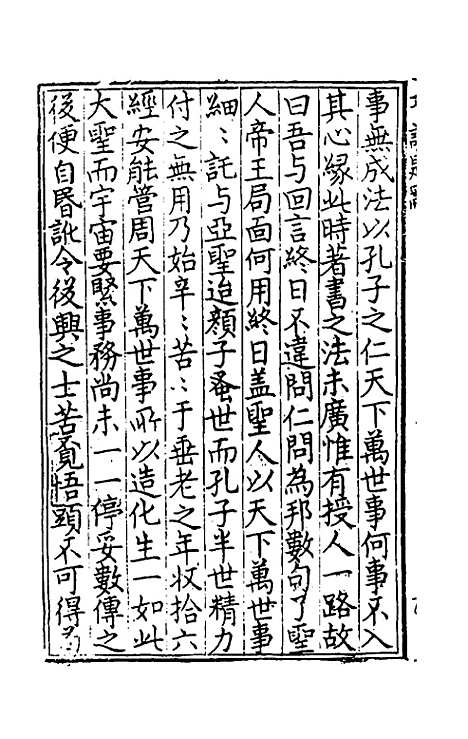 事無成法以孔子之仁天下萬世事何事不入
其心縁此時著書之法未廣惟有授人一路故
曰吾与回言終日不違問仁問為邦數句了聖
人帝王局面何用終日盖聖人以天下萬世事
細〻託与亞聖迨顔子蚤世而孔子半世精力
付之無用乃始辛〻苦〻于垂老之年収拾六
經安能管周天下萬世事所以造化生一如此
大聖而宇宙要緊事務尚未一一停妥數傳之
後便自昏訛令後興之士苦覔悟頭不可得